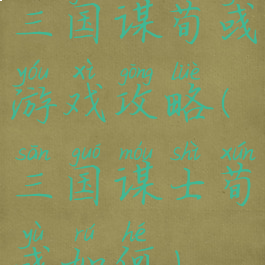 三国谋荀彧
yóu xì gōng lüè
游戏攻略(
sān guó móu shì xún
三国谋士荀
yù rú hé
彧如何)